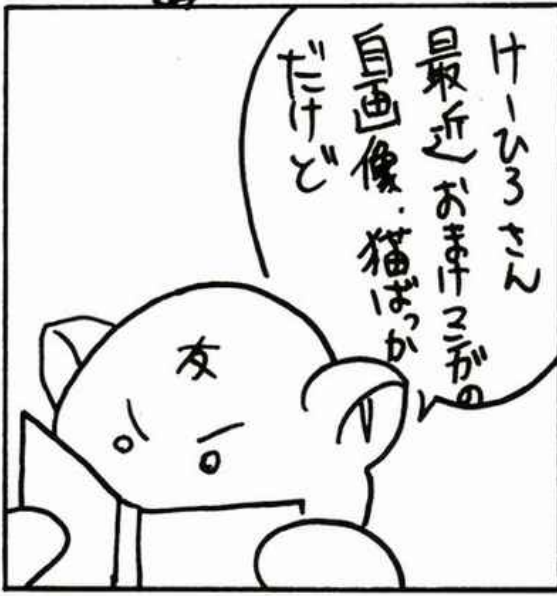 けーひろさん
最近おまけマンガの
自画像.猫ばっか
だけど
友